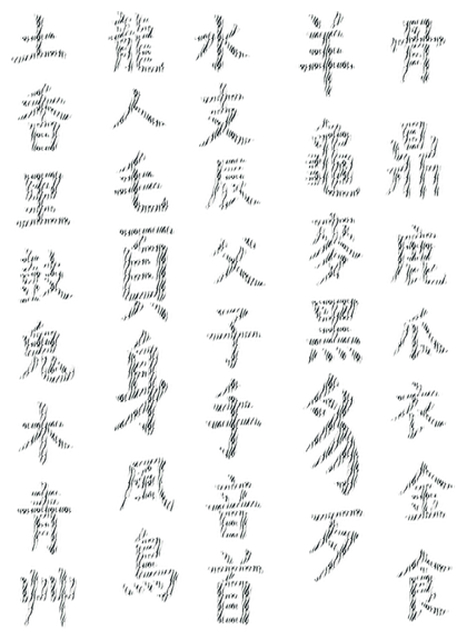 骨鼎鹿瓜衣金食
羊龜麥黑豸歹
水支辰父子手音首
龍人毛頁身風鳥
土香里鼓鬼木青艸